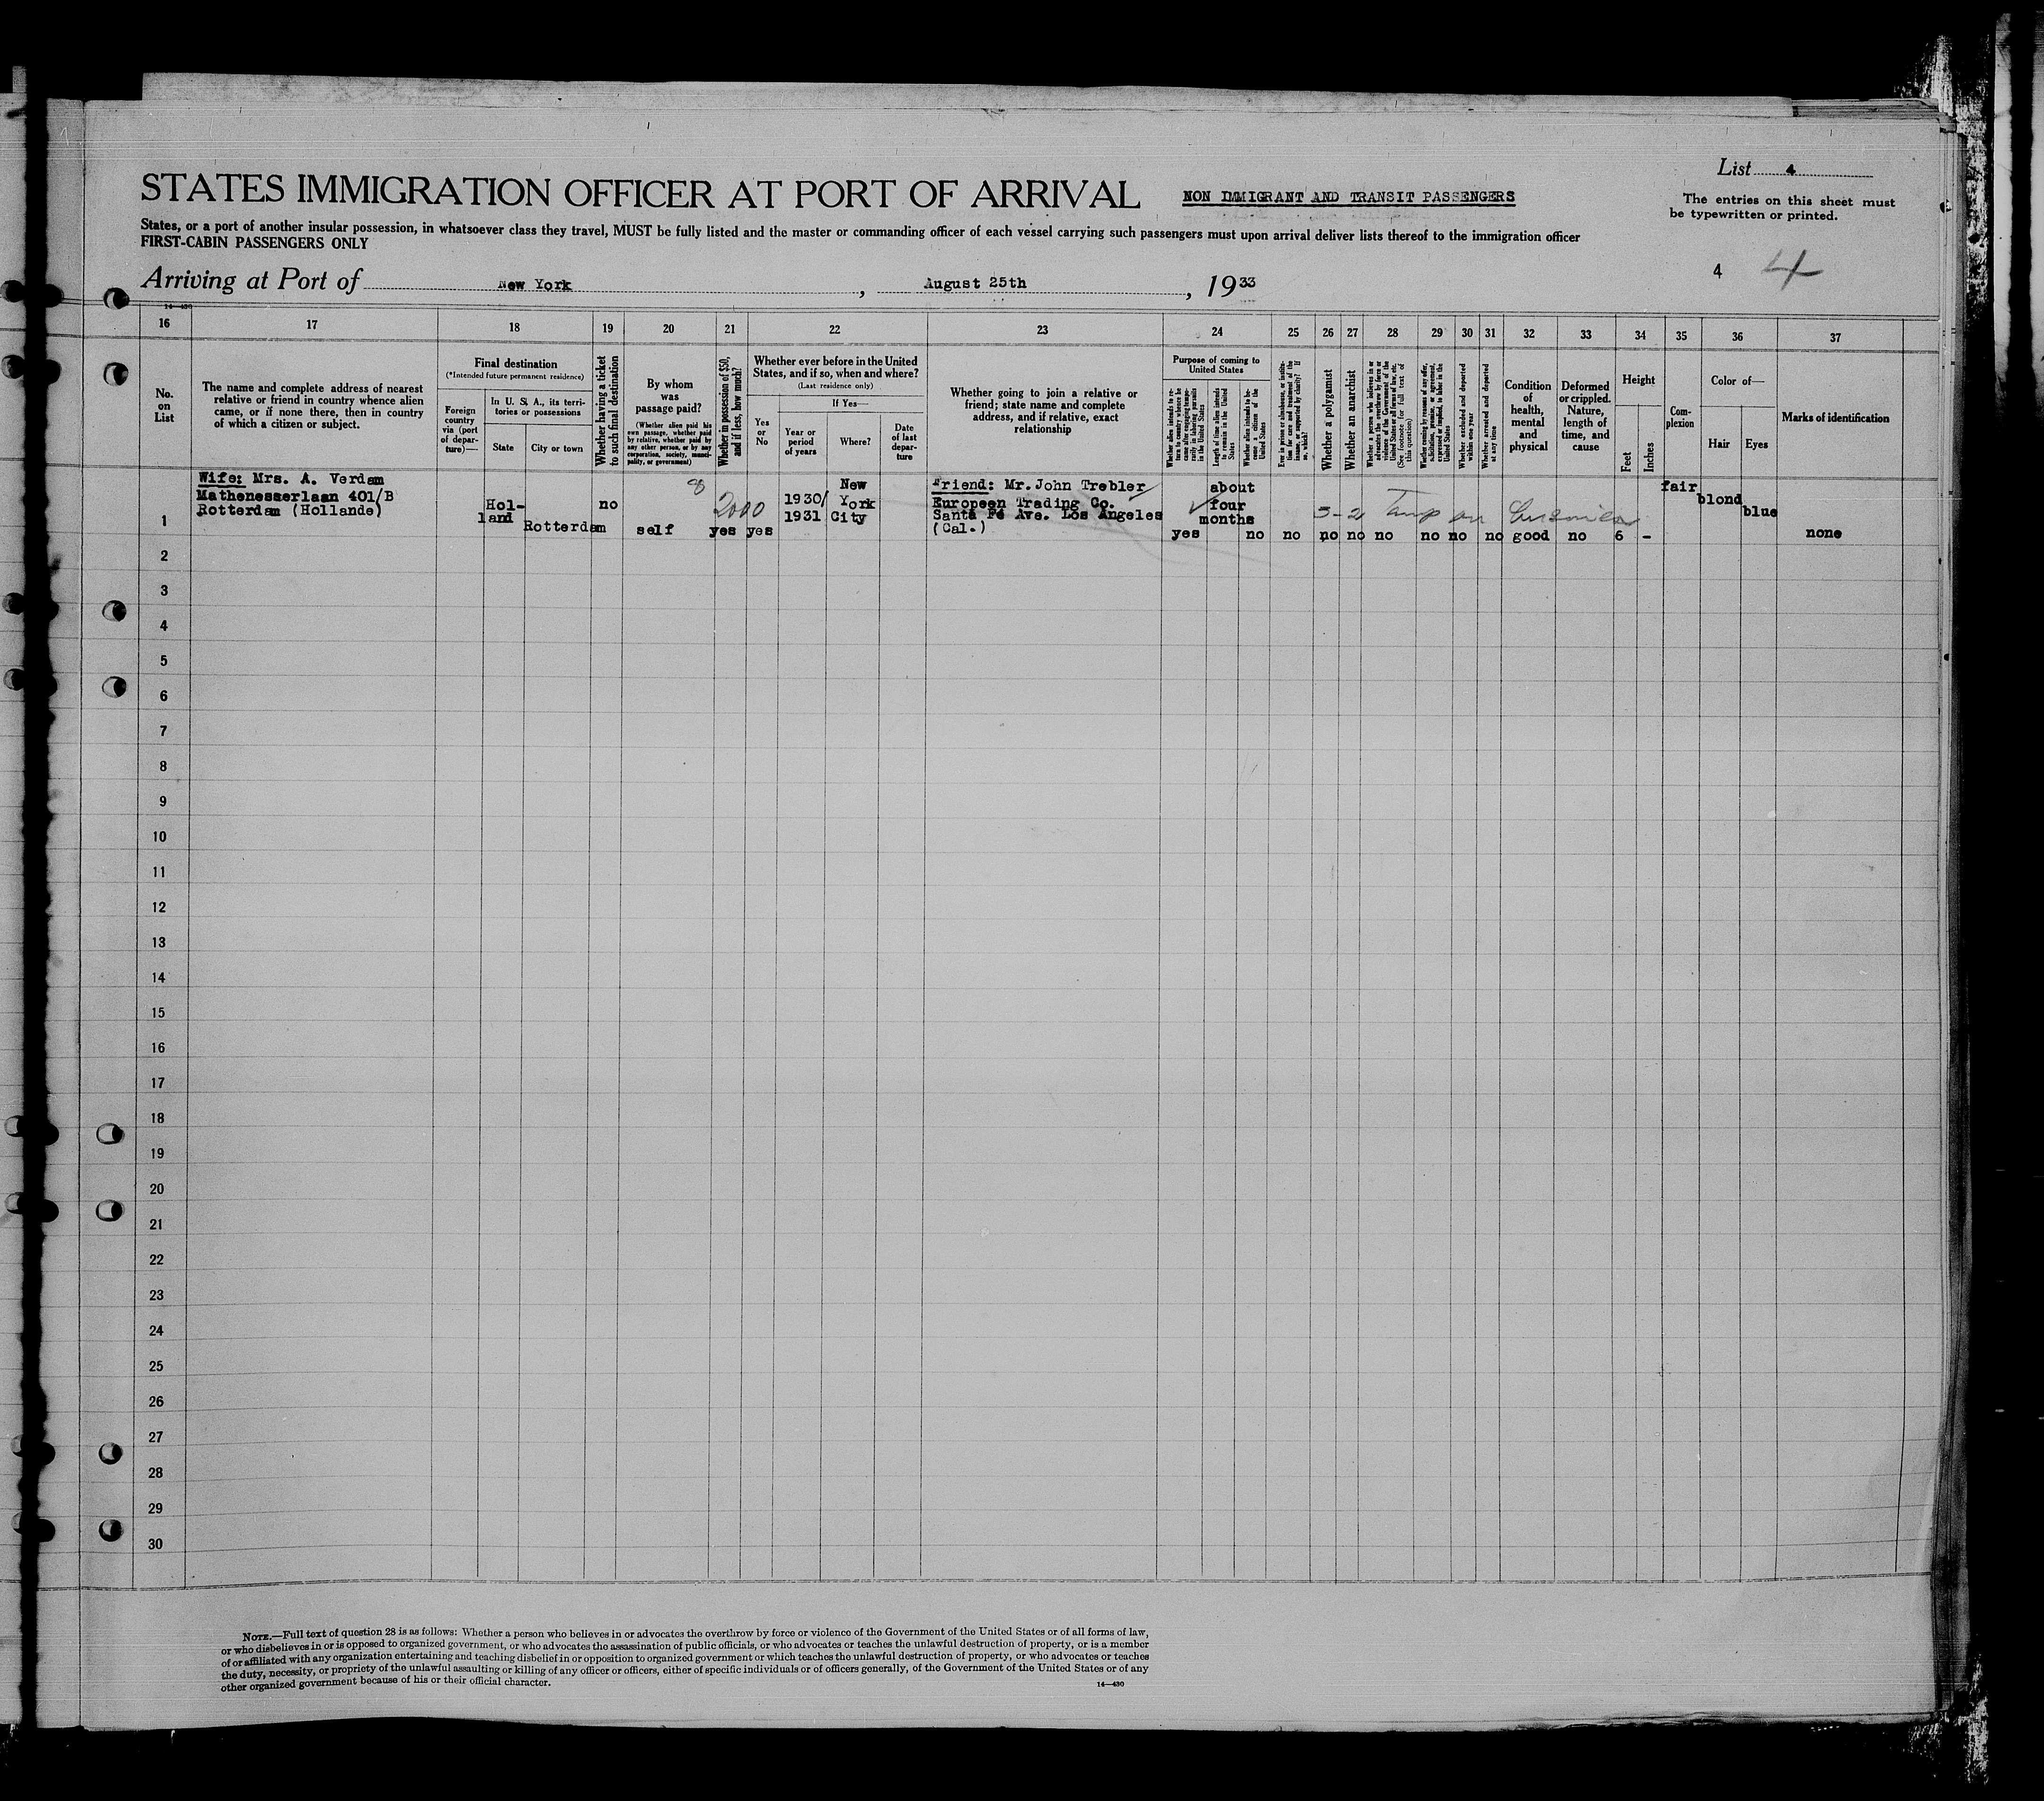 List 4
STATES IMMIGRATION OFFICER AT PORT OF ARRIVAL
NON IMMIGRANT AND TRANSIT PASSENGERS
The entries on this sheet must
be typewritten or printed.
States, or a port of another insular possession, in whatsoever class they travel, MUST be fully listed and the master or commanding officer of each vessel carrying such passengers must upon arrival deliver lists thereof to the immigration officer
FIRST-CABIN PASSENGERS ONLY
4 4
Arriving at Port of New York, August 25th, 1933
14-430
16 17 18 19 20 21 22 23 24 25 26 27 28 29 30 31 32 33 34 35 36 37
No.
on
List
The name and complete address of nearest
relative or friend in country whence alien
came, or if none there, then in country
of which a citizen or subject.
Final destination
(*Intended future permanent residence)
Foreign
country
via (port
of depar-
ture)—
In U. S. A., its terri-
tories or possessions
State
City or town
Whether having a ticket
to such final destination
By whom
was
passage paid?
(Whether alien paid his
own passage, whether paid
by relative, whether paid by
any other person, or by any
corporation, society, munici-
pality, or government)
Whether in possession of $50,
and if less, how much?
Whether ever before in the United
States, and if so, when and where?
(Last residence only)
Yes
or
No
If Yes—
Year or
period
of years
Where?
Date
of last
depar-
ture
Whether going to join a relative or
friend; state name and complete
address, and if relative, exact
relationship
Purpose of coming to
United States
Whether alien intends to re-
turn to country whence he
came after engaging tempo-
rarily in laboring pursuits
in the United States
Length of time alien intends
to remain in the United
States
Whether alien intends to be-
come a citizen of the
United States
Ever in prison or almshouse, or institu-
tion for care and treatment of the
insane, or supported by charity? If
so, which?
Whether a polygamist
Whether an anarchist
Whether a person who believes in or
advocates the overthrow by force or
violence of the Government of the
United States or all forms of law, etc.
(See footnote for full text of
this question)
Whether coming by reasons of any offer,
solicitation, promise, or agreement,
expressed or implied, to labor in the
United States
Whether excluded and deported
within one year
Whether arrested and deported
at any time
Condition
of
health,
mental
and
physical
Deformed
or crippled.
Nature,
length of
time, and
cause
Height
Feet
Inches
Com-
plexion
Color of—
Hair
Eyes
Marks of identification
1
Wife: Mrs. A. Verdam
Mathenesserlaan 401/B
Rotterdam (Hollande)
Hol-
land
Rotterdam
no
self
2000
yes
yes
1930/
1931
New
York
City
Friend: Mr. John Trebler
Europeen Trading Co.
Santa Fé Ave. Los Angeles
(Cal.)
yes
about
four
months
no no no no no no no no good no 6 -
3-2 Temp on
fair
blond
blue
none
2
3
4
5
6
7
8
9
10
11
12
13
14
15
16
17
18
19
20
21
22
23
24
25
26
27
28
29
30
NOTE.—Full text of question 28 is as follows: Whether a person who believes in or advocates the overthrow by force or violence of the Government of the United States or of all forms of law,
or who disbelieves in or is opposed to organized government, or who advocates the assassination of public officials, or who advocates or teaches the unlawful destruction of property, or is a member
of or affiliated with any organization entertaining and teaching disbelief in or opposition to organized government or which teaches the unlawful destruction of property, or who advocates or teaches
the duty, necessity, or propriety of the unlawful assaulting or killing of any officer or officers, either of specific individuals or of officers generally, of the Government of the United States or of any
other organized government because of his or their official character.
14—430